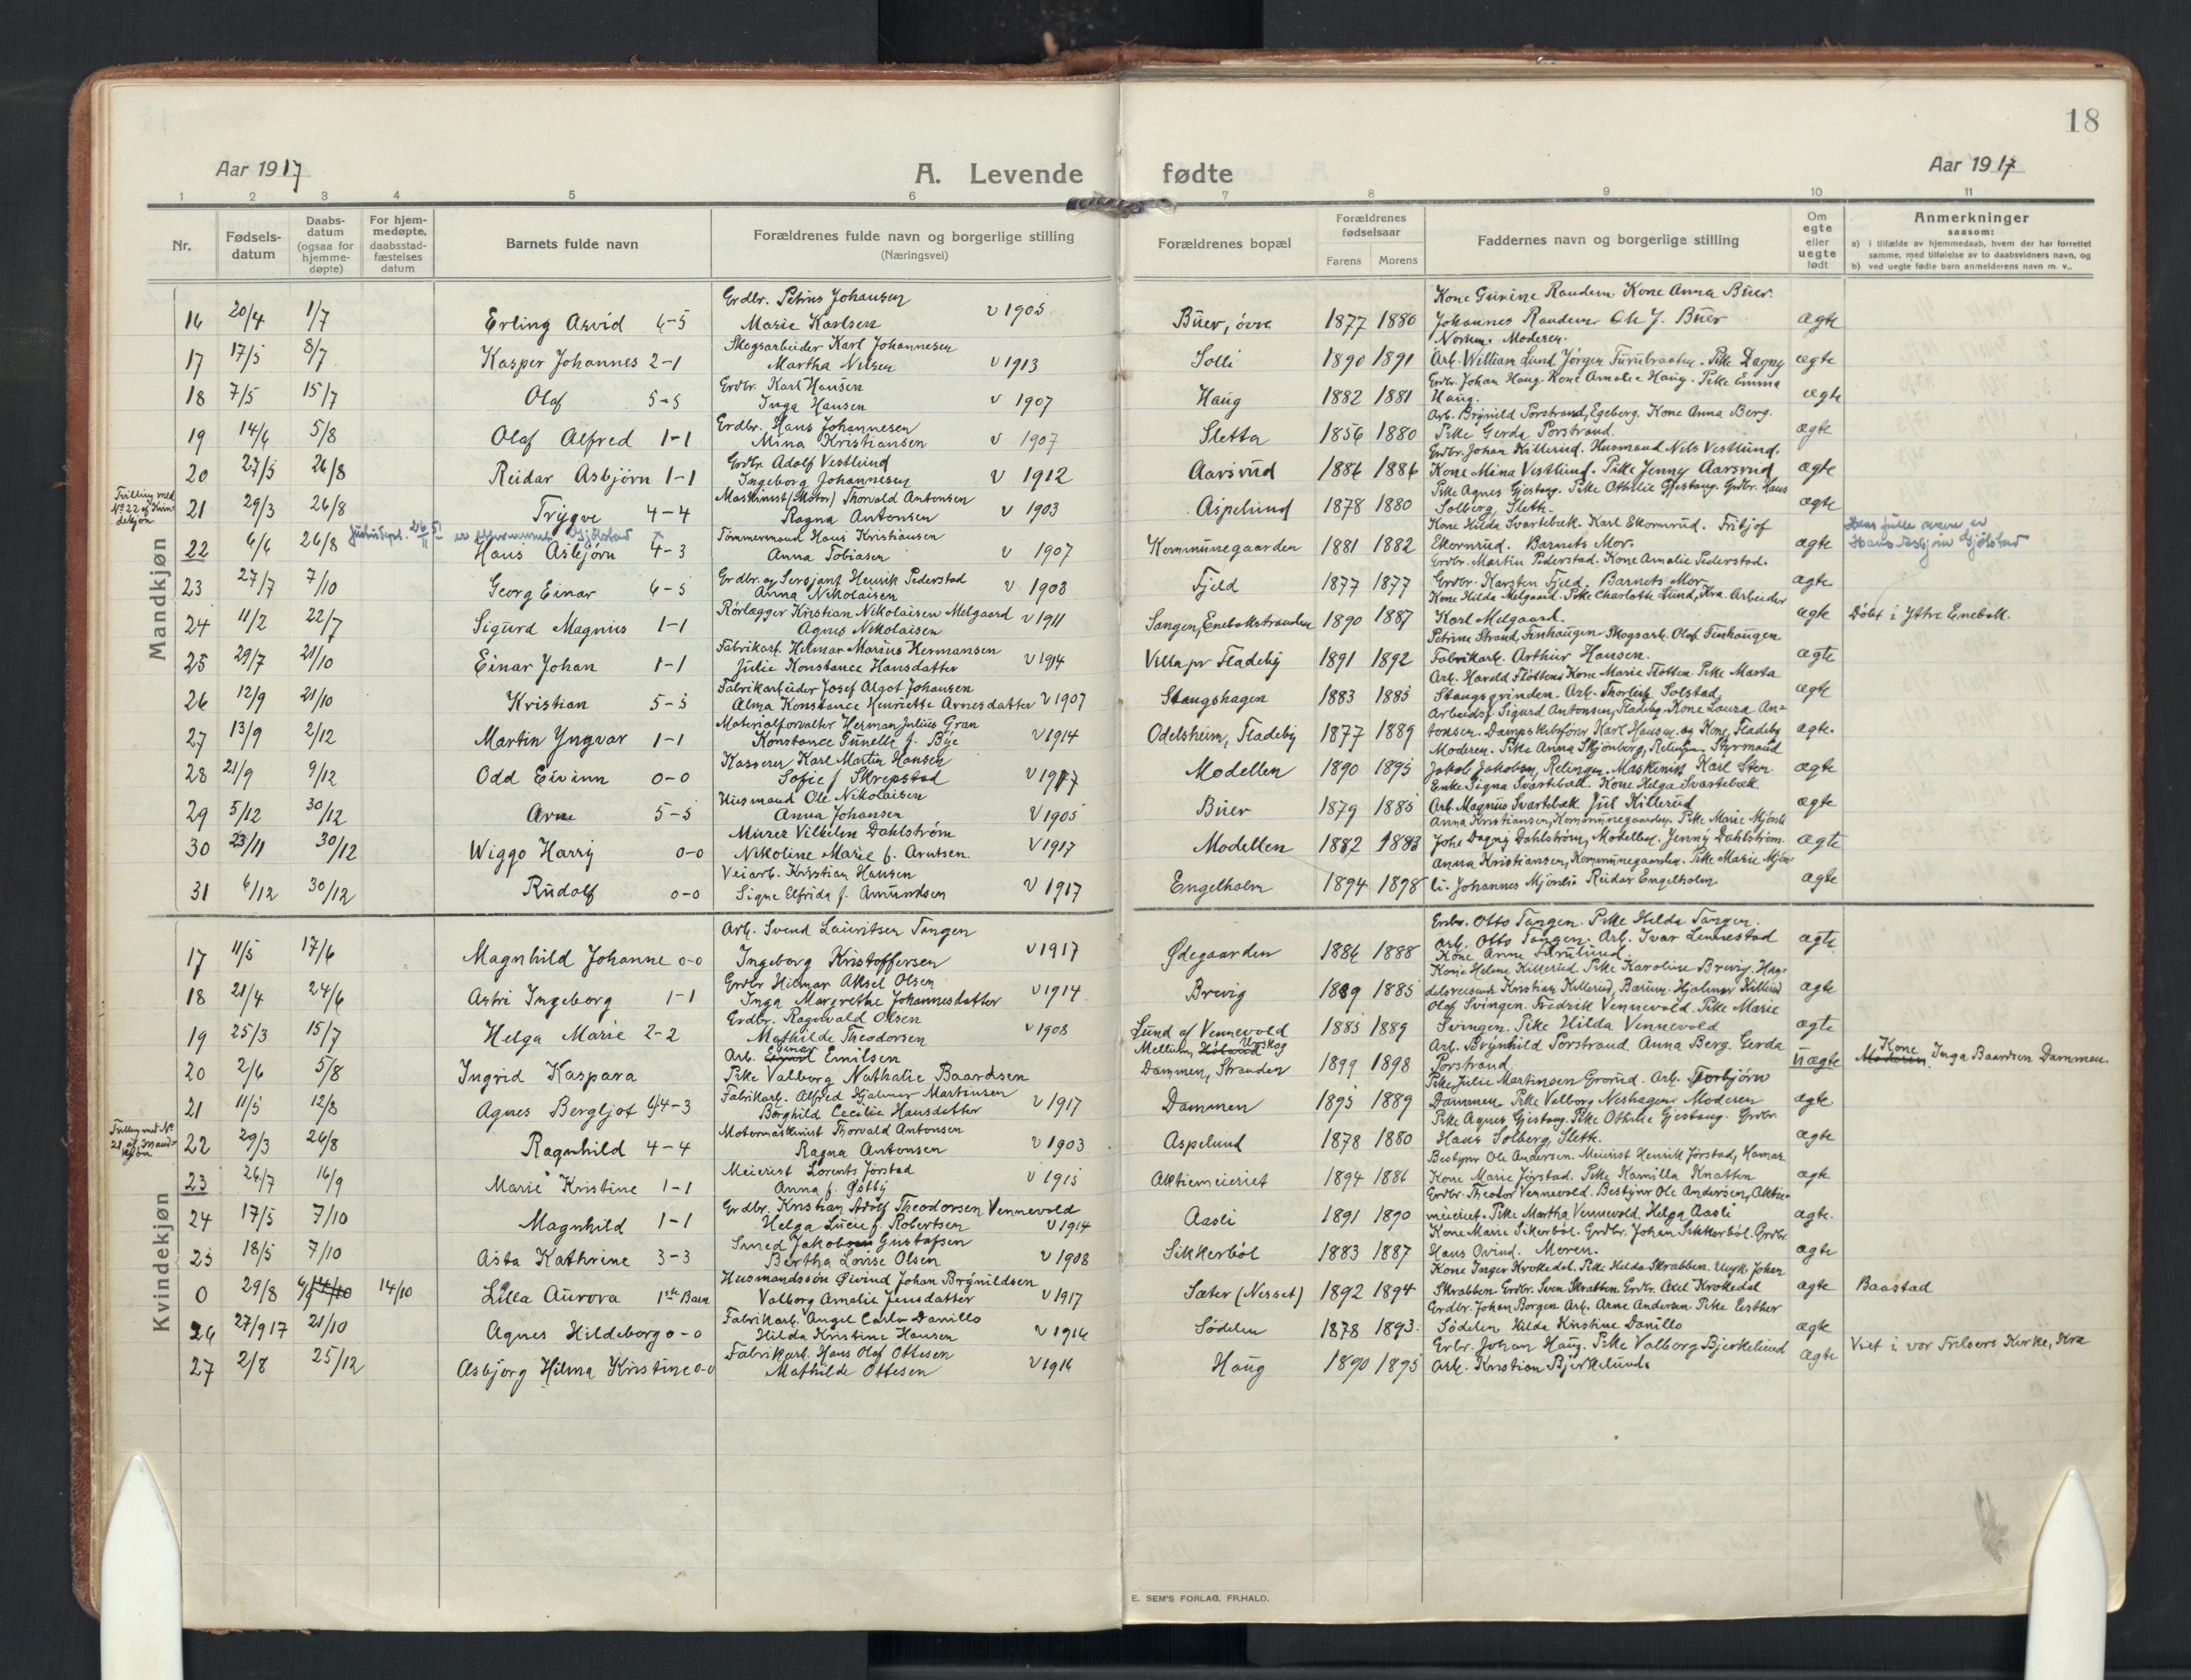 18
Aar 1917
A. Levende fødte
Aar 1917
1 2 3 4 5 6 7 8 9 10 11
Nr.
Fødsels-datum
Daabs-datum (ogsaa for hjemme-døpte)
For hjem-medøpte, daabsstad-fæstelses datum
Barnets fulde navn
Forældrenes fulde navn og borgerlige stilling
(Næringsvei)
Forældrenes bopæl
Forældrenes fødselsaar
Farens Morens
Faddernes navn og borgerlige stilling
Om egte eller uegte født
Anmerkninger
saasom:
a) i tilfælde av hjemmedaab, hvem der har forrettet samme, med tilføielse av to daabsvidners navn, og
b) ved uegte fødte barn anmelderens navn m. v..
Mandkjøn
Grdbr. Petrus Johansen Kone Gurine Randem. Kone Anna Buer.
16 20/4 1/7 Erling Arvid 6-5 Marie Karlsen v 1905 Buer, övre 1877 1880 Johannes Randem Ole J. Buer ægte
Skogsarbeider Karl Johannesen Moderen.
17 17/5 8/7 Kasper Johannes 2-1 Martha Nilsen v 1913 Solli 1890 1891 Arb. William Lund Jörgen Furubraaten. Pike Dagny ægte
Grdbr. Karl Hansen Grdbr. Johan Haug. Kone Amalie Haug. Pike Emma
18 7/5 15/7 Olaf 5-5 Inga Hansen v 1907 Haug 1882 1881 Haug. ægte
Grdbr. Hans Johannesen Arb. Brynild Porstrand, Egeberg. Kone Anna Berg.
19 14/6 5/8 Olaf Alfred 1-1 Mina Kristiansen v 1907 Sletta 1856 1880 Pike Gerda Porstrand. ægte
Grdbr. Adolf Vestlund Grdbr. Johan Killerud. Husmand Nils Vestlund.
20 27/5 26/8 Reidar Asbjörn 1-1 Ingeborg Johannesen v 1912 Aarsrud 1886 1886 Kone Mina Vestlund. Pike Jenny Aarsrud ægte
Tvilling med No 22 af Kvindekjøn
Maskinist (Motor) Thorvald Antonsen Pike Agnes Gjestang. Pike Othilie Gjestang. Grdbr. Hans
21 29/3 26/8 Trygve 4-4 Ragna Antonsen v 1903 Aspelund 1878 1880 Solberg, Sleth. ægte
Tömmermand Hans Kristiansen Kone Hilda Svartebæk. Karl Ekornrud. Fritjof Hans fulle navn er
22 6/6 26/8 Hans Asbjörn 4-3 Anna Tobiasen v 1907 Kommunegaarden 1881 1882 Ekornrud. Barnets Mor. ægte Hans Asbjörn Gjölstad
Grdbr. og Sersjant Henrik Pederstad Grdbr. Martin Pederstad. Kone Amalie Pederstad.
23 27/7 7/10 Georg Einar 6-5 Anna Nikolaisen v 1903 Fjeld 1877 1877 Grdbr. Karsten Fjeld. Barnets Mor. ægte
Rörlægger Kristian Nikolaisen Melgaard Kone Hilda Melgaard. Pike Charlotte Lund, Kra. Arbeider
24 11/2 22/7 Sigurd Magnus 1-1 Agnes Nikolaisen v 1911 Tangen, Enebakstranden 1890 1887 Karl Melgaard. ægte Döbt i Ytre Enebakk.
Fabrikarb. Helmar Marius Hermansen Petrine Strand, Finhaugen Skogsarb. Olaf Finhaugen
25 29/7 21/10 Einar Johan 1-1 Julie Konstance Hansdatter v 1914 Villa pr Fladeby 1891 1892 Fabrikarb. Arthur Hansen. ægte
Fabrikarbeider Josef Algot Johansen Arb. Harald Flötten Kone Marie Flötten Pike Marta
26 12/9 21/10 Kristian 5-5 Alma Konstance Henriette Arnesdatter v 1907 Stangshagen 1883 1885 Stangsgrinden. Arb. Thorleif Solstad ægte
Materialforvalter Herman Julius Gran Arbeidsf. Sigurd Antonsen, Fladeby. Kone Laura An-
27 13/9 2/12 Martin Yngvar 1-1 Konstance Gunelle f. Bye v 1914 Odelsheim, Fladeby 1877 1889 tonsen. Dampskibsförer Karl Hansen og Kone, Fladeby ægte.
Kasserer Karl Martin Hansen Moderen. Pike Anna Skjönberg, Relingen. Styrmand
28 21/9 9/12 Odd Eivinn 0-0 Sofie f. Skrepstad v 1917 Modellen 1890 1895 Jakob Jakobsen, Relingen. Maskinist Karl Sten ægte
Husmand Ole Nikolaisen Enke Signa Svartebæk. Kone Helga Svartebæk.
29 5/12 30/12 Arne 5-5 Anna Johansen v 1905 Buer 1879 1885 Arb. Magnus Svartebæk Jul Killerud ægte
Murer Vilhelm Dahlström Anna Kristiansen, Kommunegaarden. Pike Marie Mjönli
30 23/11 30/12 Wiggo Harry 0-0 Nikoline Marie f. Arntsen. v 1917 Modellen 1882 1883 Dagny Dahlström, Modellen. Jenny Dahlström. ægte
Veiarb. Kristian Hansen Anna Kristiansen, Kommunegaarden. Pike Marie Mjön-
31 6/12 30/12 Rudolf 0-0 Signe Elfrida f. Amundsen v 1917 Engelholm 1894 1898 li. Johannes Mjönli Reidar Engelholm ægte
Kvindekjøn
Arb. Svend Lauritsen Tangen Otto Tangen. Pike Hilda Tangen.
17 11/5 17/6 Magnhild Johanne 0-0 Ingeborg Kristoffersen v 1917 Ødegaarden 1886 1888 Arb. Otto Tangen. Arb. Ivar Lennestad ægte
Kone Anne
Grdbr Hilmar Aksel Olsen Kone Helene Killerud. Pike Karoline Brevig. Han-
18 21/4 24/6 Astri Ingeborg 1-1 Inga Margrethe Johannesdatter v 1914 Brevig 1889 1885 delsreisende Kristian Killerud, Bærum. Hjalmar Killerud ægte
Grdbr. Ragnvald Olsen Olaf Svingen. Fredrik Vennevold. Pike Marie
19 25/3 15/7 Helga Marie 2-2 Mathilde Theodorsen v 1908 Lund af Vennevold 1885 1889 Svingen. Pike Hilda Vennevold ægte
Arb. Einar Emilsen Mellum, Høland Urskog Arb. Brynhild Porstrand. Anna Berg. Gerda Kone
20 2/6 5/8 Ingrid Kaspara Pike Valborg Nathalie Baardsen Dammen, Stranden 1899 1898 Porstrand uægte Moderen Inga Baardsen Dammen.
Fabrikarb. Alfred Hjalmar Martinsen Pike Julie Martinsen Grorud. Arb. Torbjörn
21 11/5 12/8 Agnes Bergljot 4-3 Borghild Cecilie Hansdatter v 1917 Dammen 1895 1889 Dammen. Pike Valborg Neshagen Moderen ægte
Tvilling med No 21 af Mandkjøn
Motormaskinist Thorvald Antonsen Pike Agnes Gjestang. Pike Othilie Gjestang. Grdbr.
22 29/3 26/8 Ragnhild 4-4 Ragna Antonsen v 1903 Aspelund 1878 1880 Hans Solberg, Sleth. ægte
Meierist Lorents Jørstad Bestyrer Ole Andersen. Meierist Henrik Jørstad, Hamar
23 26/7 16/9 Marie Kristine 1-1 Anna f. Østby v 1915 Aktiemeieriet 1894 1886 Kone Marie Jørstad. Pike Kamilla Knatten ægte
Grdbr. Kristian Adolf Theodorsen Vennevold Grdbr. Theodor Vennevold. Bestyrer Ole Andersen, Aktie-
24 17/5 7/10 Magnhild 1-1 Helga Lucie f. Robertsen v 1914 Aasli 1891 1890 meieriet. Pike Martha Vennevold. Helga Aasli ægte.
Smed Jakob Gustafsen Kone Marie Sikkerböl. Grdbr. Johan Sikkerböl. Grdbr.
25 18/5 7/10 Asta Kathrine 3-3 Bertha Lovise Olsen v 1908 Sikkerböl 1883 1887 Hans Ovind. Moren. ægte
Husmandssön Øivind Johan Brynildsen Kone Inger Krokedal. Pike Helda Skrabben. Ungk. Johan
0 29/8 14/10 14/10 Lilla Aurora 1ste Barn Valborg Amalie Jensdatter v 1917 Sæter (Nesset) 1892 1894 Skrabben Grdbr. Sven Skrabben Grdbr. Axel Krokedal ægte Baastad
Fabrikarb. Angel Carlo Danillo Grdbr. Johan Borgen Arb. Arne Andersen. Pike Esther
26 27/9 17 21/10 Agnes Hildeborg 0-0 Hilda Kristine Hansen v 1916 Södelen 1878 1893. Södelen Hilda Kristine Danillo ægte
Fabrikarb. Hans Olaf Ottesen Johan Haug. Pike Valborg Bjerkelund Viet i vor Frelsers Kirke, Kra
27 2/8 25/12 Asbjørg Hilma Kristine 0-0 Mathilde Ottesen v 1916 Haug 1890 1895 Arb. Kristian Bjerkelund. ægte
E. SEM'S FORLAG, FR.HALD.